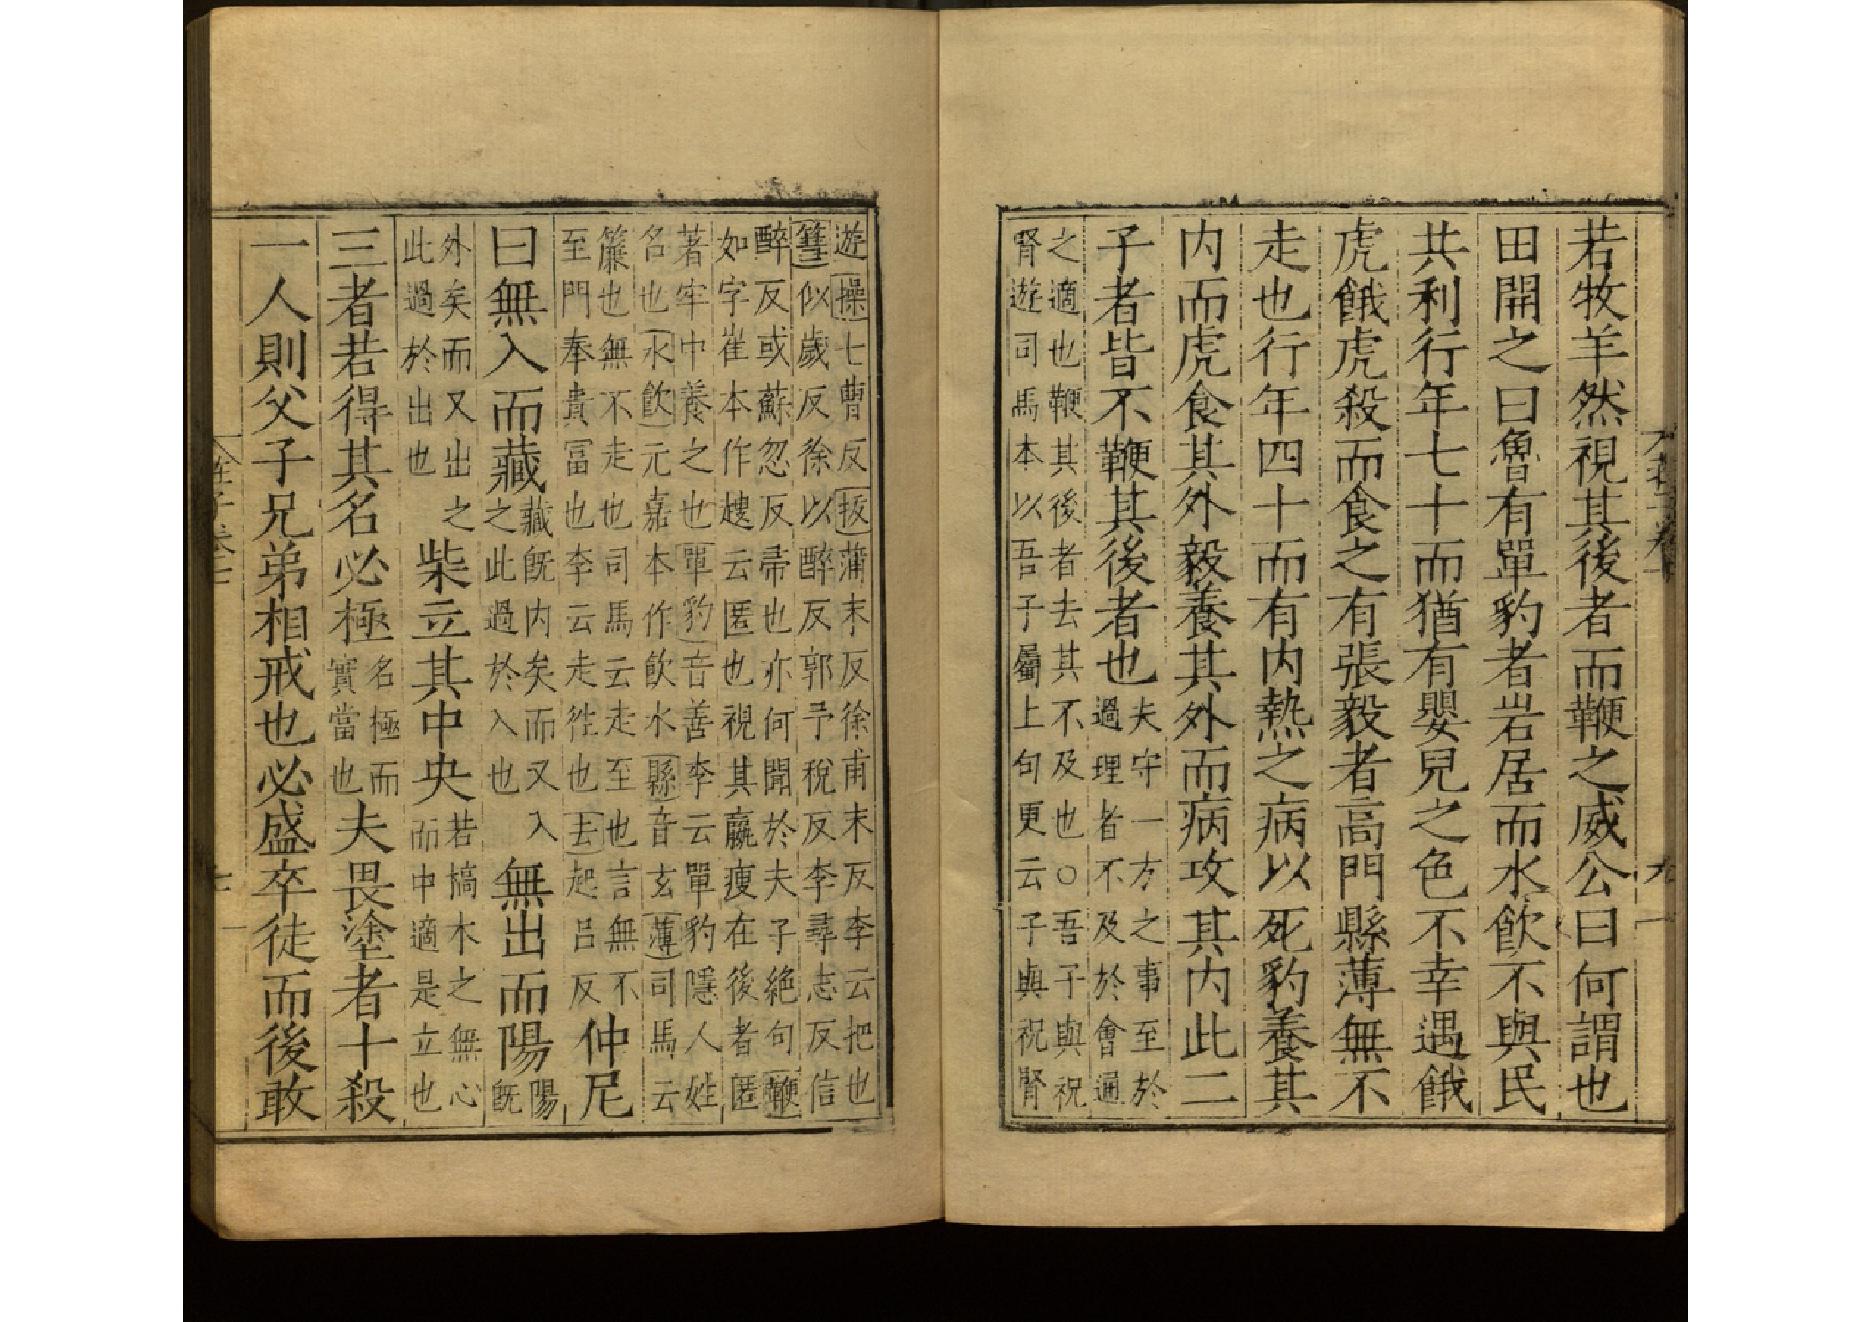 若牧羊然視其後者而鞭之威公曰何謂也
田開之曰魯有單豹者岩居而水飲不與民
共利行年七十而猶有嬰兒之色不幸遇餓
虎餓虎殺而食之有張毅者高門縣薄無不
走也行年四十而有内熱之病以死豹養其
内而虎食其外毅養其外而病攻其内此二
子者皆不鞭其後者也夫守一方之事至於
過理者不及於會通
之適也鞭其後者去其不及也○吾子與祝
腎遊司馬本以吾子屬上句更云子與祝腎
遊操七曹反拔蒲末反徐甫末反李云把也
篲似歲反徐以醉反郭予稅反李尋志反信
醉反或蘇忽反帚也亦何聞於夫子絶句鞭
如字崔本作𨄔云匿也視其羸瘦在後者匿
著牢中養之也單豹音善李云單豹隱人姓
名也水飲元嘉本作飲水縣音玄薄司馬云
簾也無不走也司馬云走至也言無不
至門奉貴富也李云走徃也去起吕反
仲尼
曰無入而藏藏旣内矣而又入
之此過於入也
無出而陽陽旣
外矣而又出之
此過於出也
柴立其中央若槁木之無心
而中適是立也
三者若得其名必極名極而
實當也
夫畏塗者十殺
一人則父子兄弟相戒也必盛卒徒而後敢